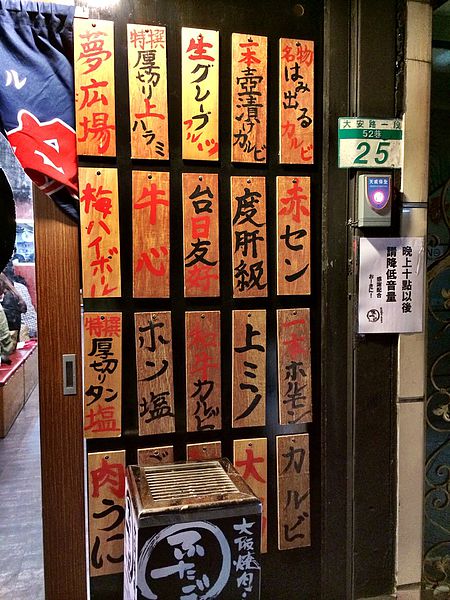 ル
肉
夢広場
特撰
厚切り上ハラミ
生グレープフルーツ
一本壺漬けカルビ
名物
はみ出るカルビ
梅ハイボール
牛心
台日友好
度肝級
赤セン
特撰
厚切りタン塩
ホルモン塩
和牛カルビ
上ミノ
一本ホルモン
肉うに
カルビ
大
大安路一段
52巷
25
晚上十點以後
請降低音量
感謝配合
おーきに!
大阪焼肉
ふたご